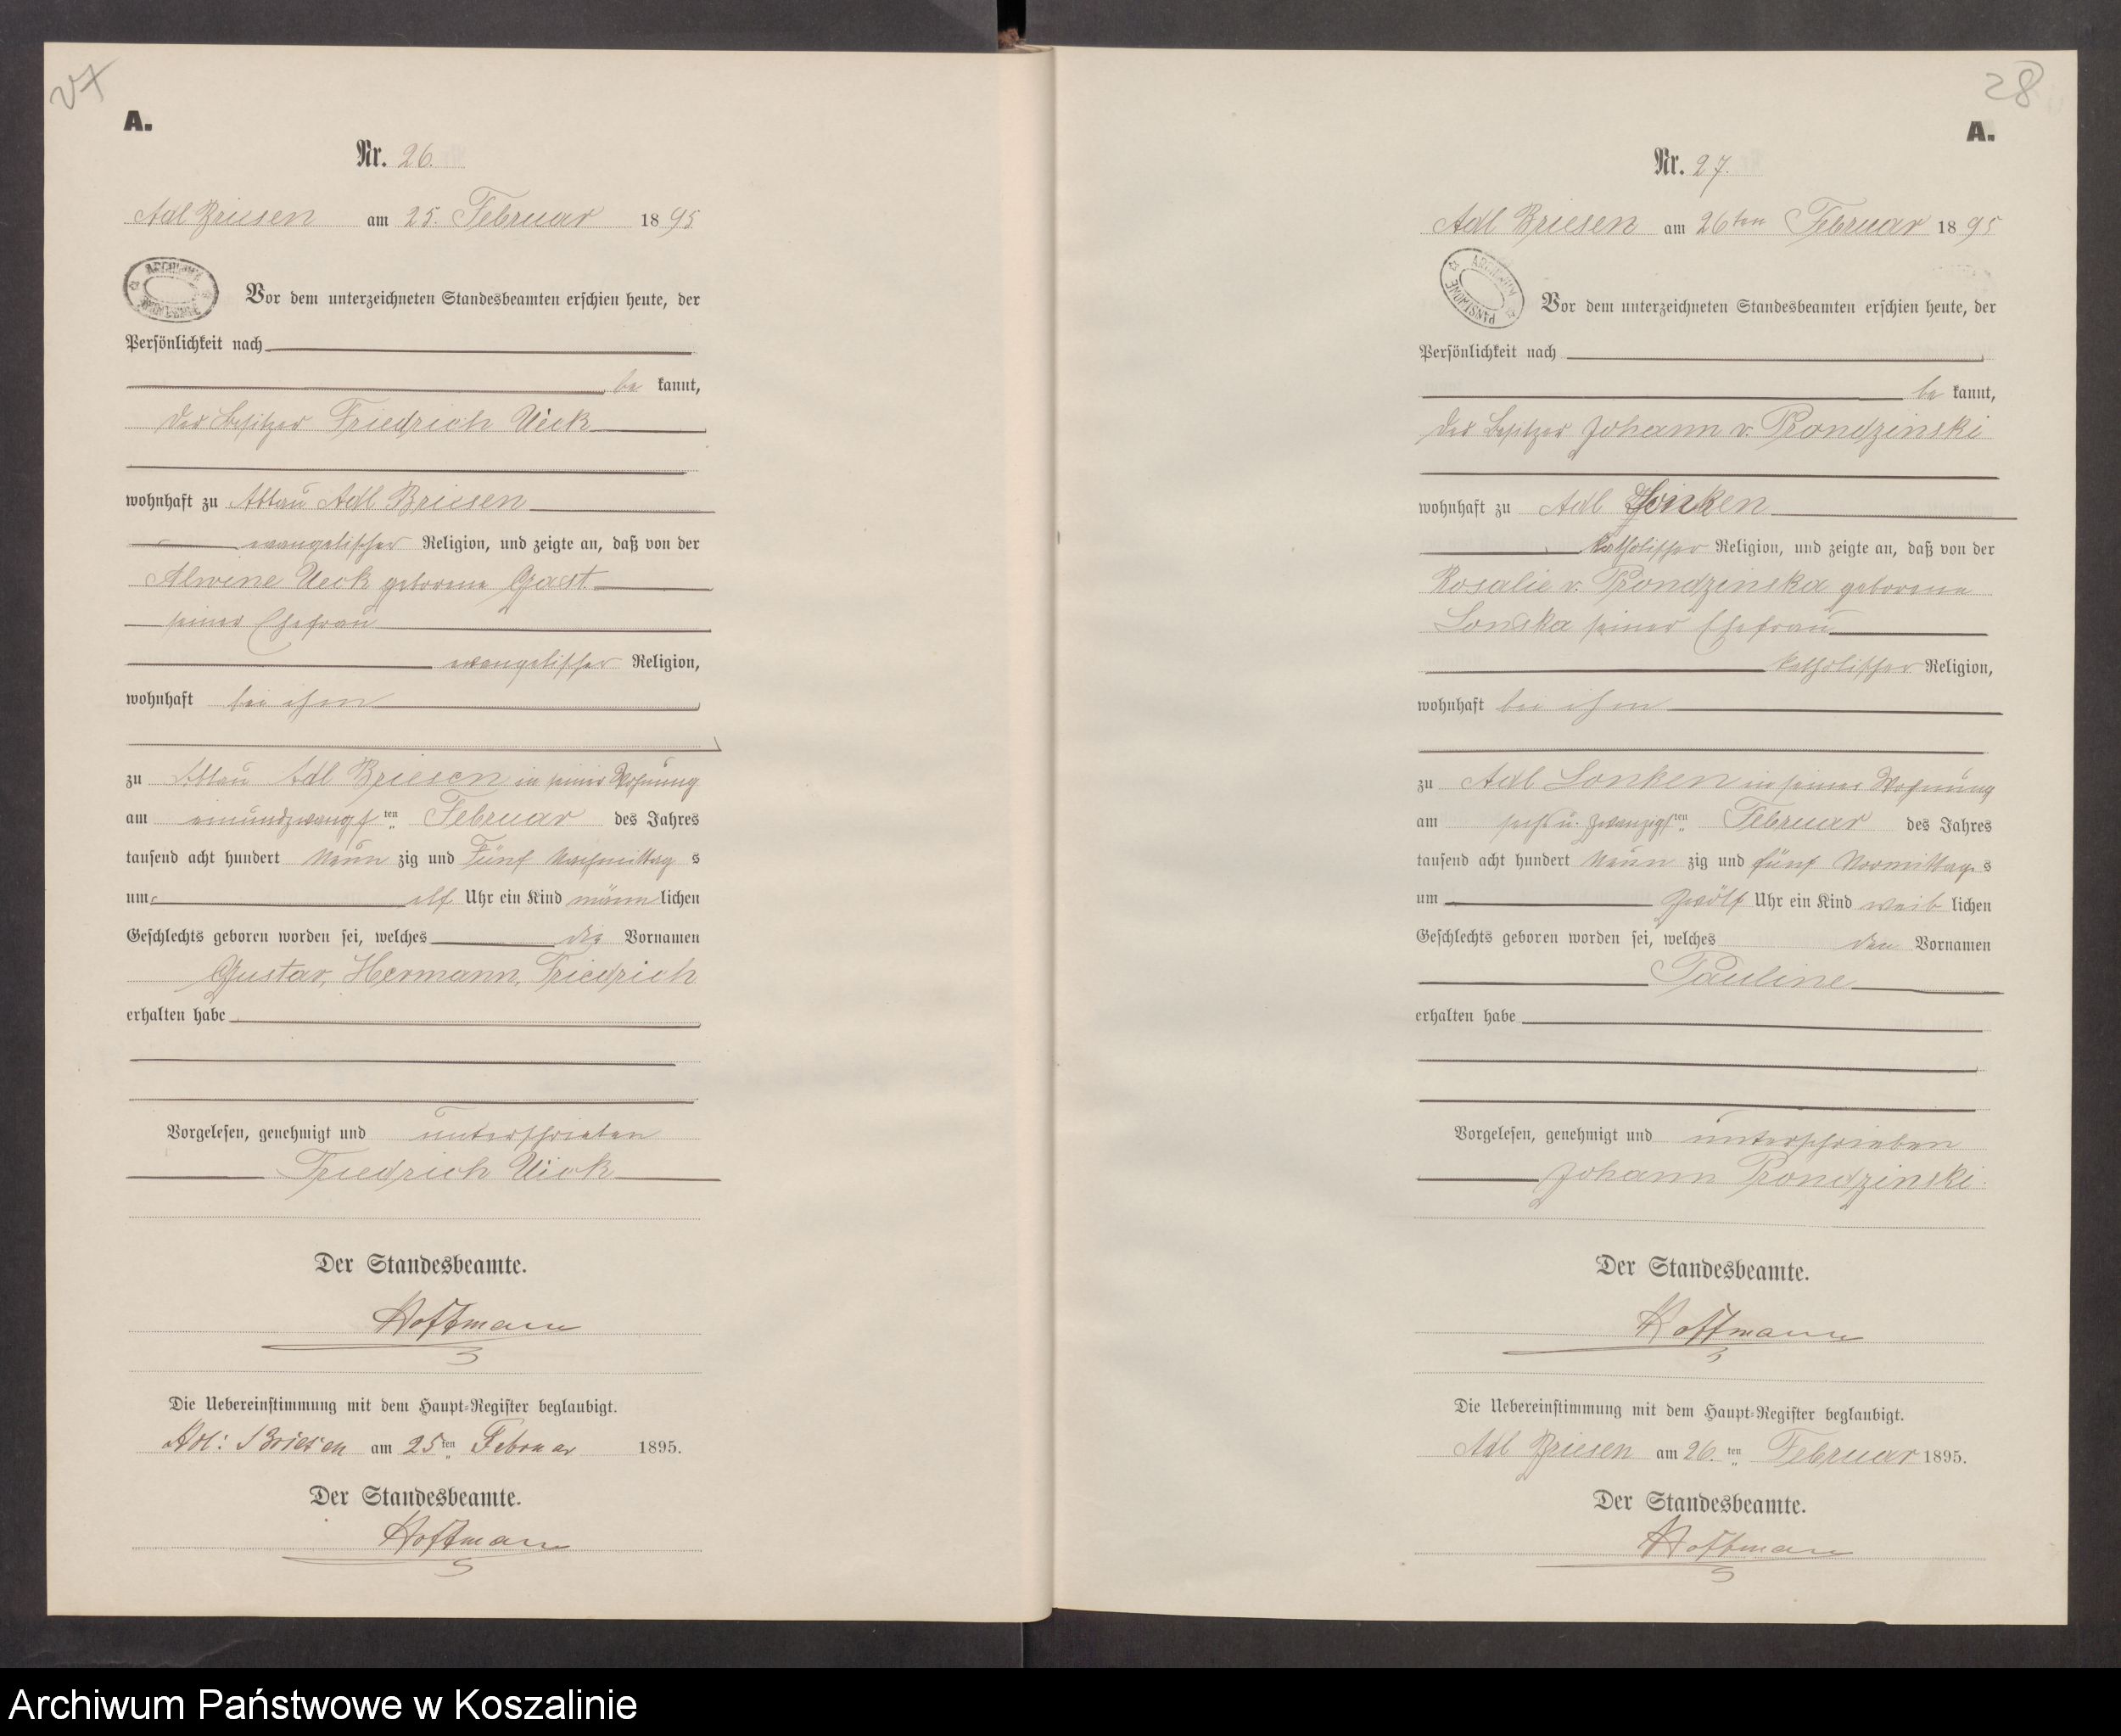 27
A.
Nr. 26.
Adl Briesen am 25. Februar 1895
ARCHIWUM
Vor dem unterzeichneten Standesbeamten erschien heute, der
Persönlichkeit nach
be kannt,
der Besitzer Friedrich Ueck
wohnhaft zu Abbau Adl Briesen
evangelischer Religion, und zeigte an, daß von der
Alwine Ueck geborene Gast
seiner Ehefrau
evangelischer Religion,
wohnhaft bei ihm
zu Abbau Adl Briesen in seiner Wohnung
am einundzwanzigsten Februar des Jahres
tausend acht hundert Neun zig und Fünf Nachmittag s
um elf Uhr ein Kind männ lichen
Geschlechts geboren worden sei, welches die Vornamen
Gustav, Hermann, Friedrich
erhalten habe
Vorgelesen, genehmigt und unterschrieben
Friedrich Ueck
Der Standesbeamte.
Hoffmann
Die Uebereinstimmung mit dem Haupt-Register beglaubigt.
Adl: Briesen am 25ten Februar 1895.
Der Standesbeamte.
Hoffmann
28
A.
Nr. 27.
Adl Briesen am 26ten Februar 1895
ARCHIWUM PAŃSTWOWE
Vor dem unterzeichneten Standesbeamten erschien heute, der
Persönlichkeit nach
be kannt,
der Besitzer Johann v. Prondzinski
wohnhaft zu Adl
katholischer Religion, und zeigte an, daß von der
Rosalie v. Prondzinska geborene
Lonska seiner Ehefrau
katholischer Religion,
wohnhaft bei ihm
zu Adl Lonken in seiner Wohnung
am sechs u. zwanzigsten Februar des Jahres
tausend acht hundert Neun zig und fünf Vormittag s
um zwölf Uhr ein Kind weib lichen
Geschlechts geboren worden sei, welches den Vornamen
Pauline
erhalten habe
Vorgelesen, genehmigt und unterschrieben
Johann Prondzinski
Der Standesbeamte.
Hoffmann
Die Uebereinstimmung mit dem Haupt-Register beglaubigt.
Adl Briesen am 26.ten Februar 1895.
Der Standesbeamte.
Hoffmann
Archiwum Państwowe w Koszalinie